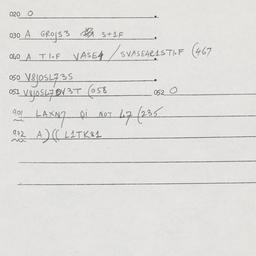 020 0
030 A GROJS3 S+1F
040 A TI.F VASE4 / SVASEAR1STI.F (467
050 V8JOSL73S
051 V8JOSL7 V3T (058 052 0
901 LAXN7 DI NOT L7 (235
902 A)(( L1TK81